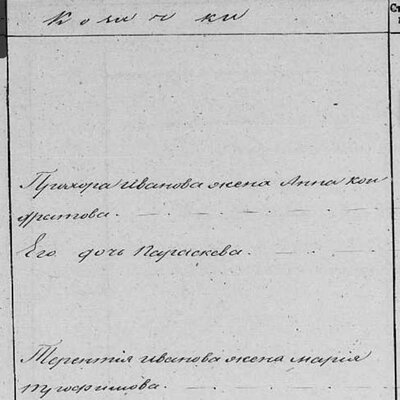 Ст
Прохора Иванова жена Анна Кон
дратова.
Его дочь Параскева.
Терентія Иванова жена Марія
Трофимова.